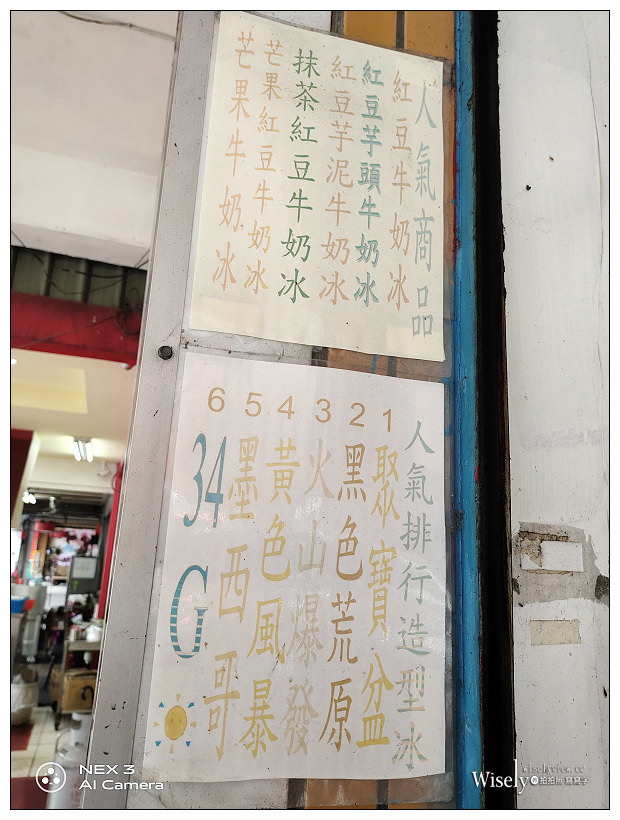 人氣商品
紅豆牛奶冰
紅豆芋頭牛奶冰
紅豆芋泥牛奶冰
抹茶紅豆牛奶冰
芒果紅豆牛奶冰
芒果牛奶冰
人氣排行造型冰
1聚寶盆
2黑色荒原
3火山爆發
4黃色風暴
5墨西哥
6 34G
NEX 3
AI Camera
wiselyview.cc
Wisely拍拍照寫寫字